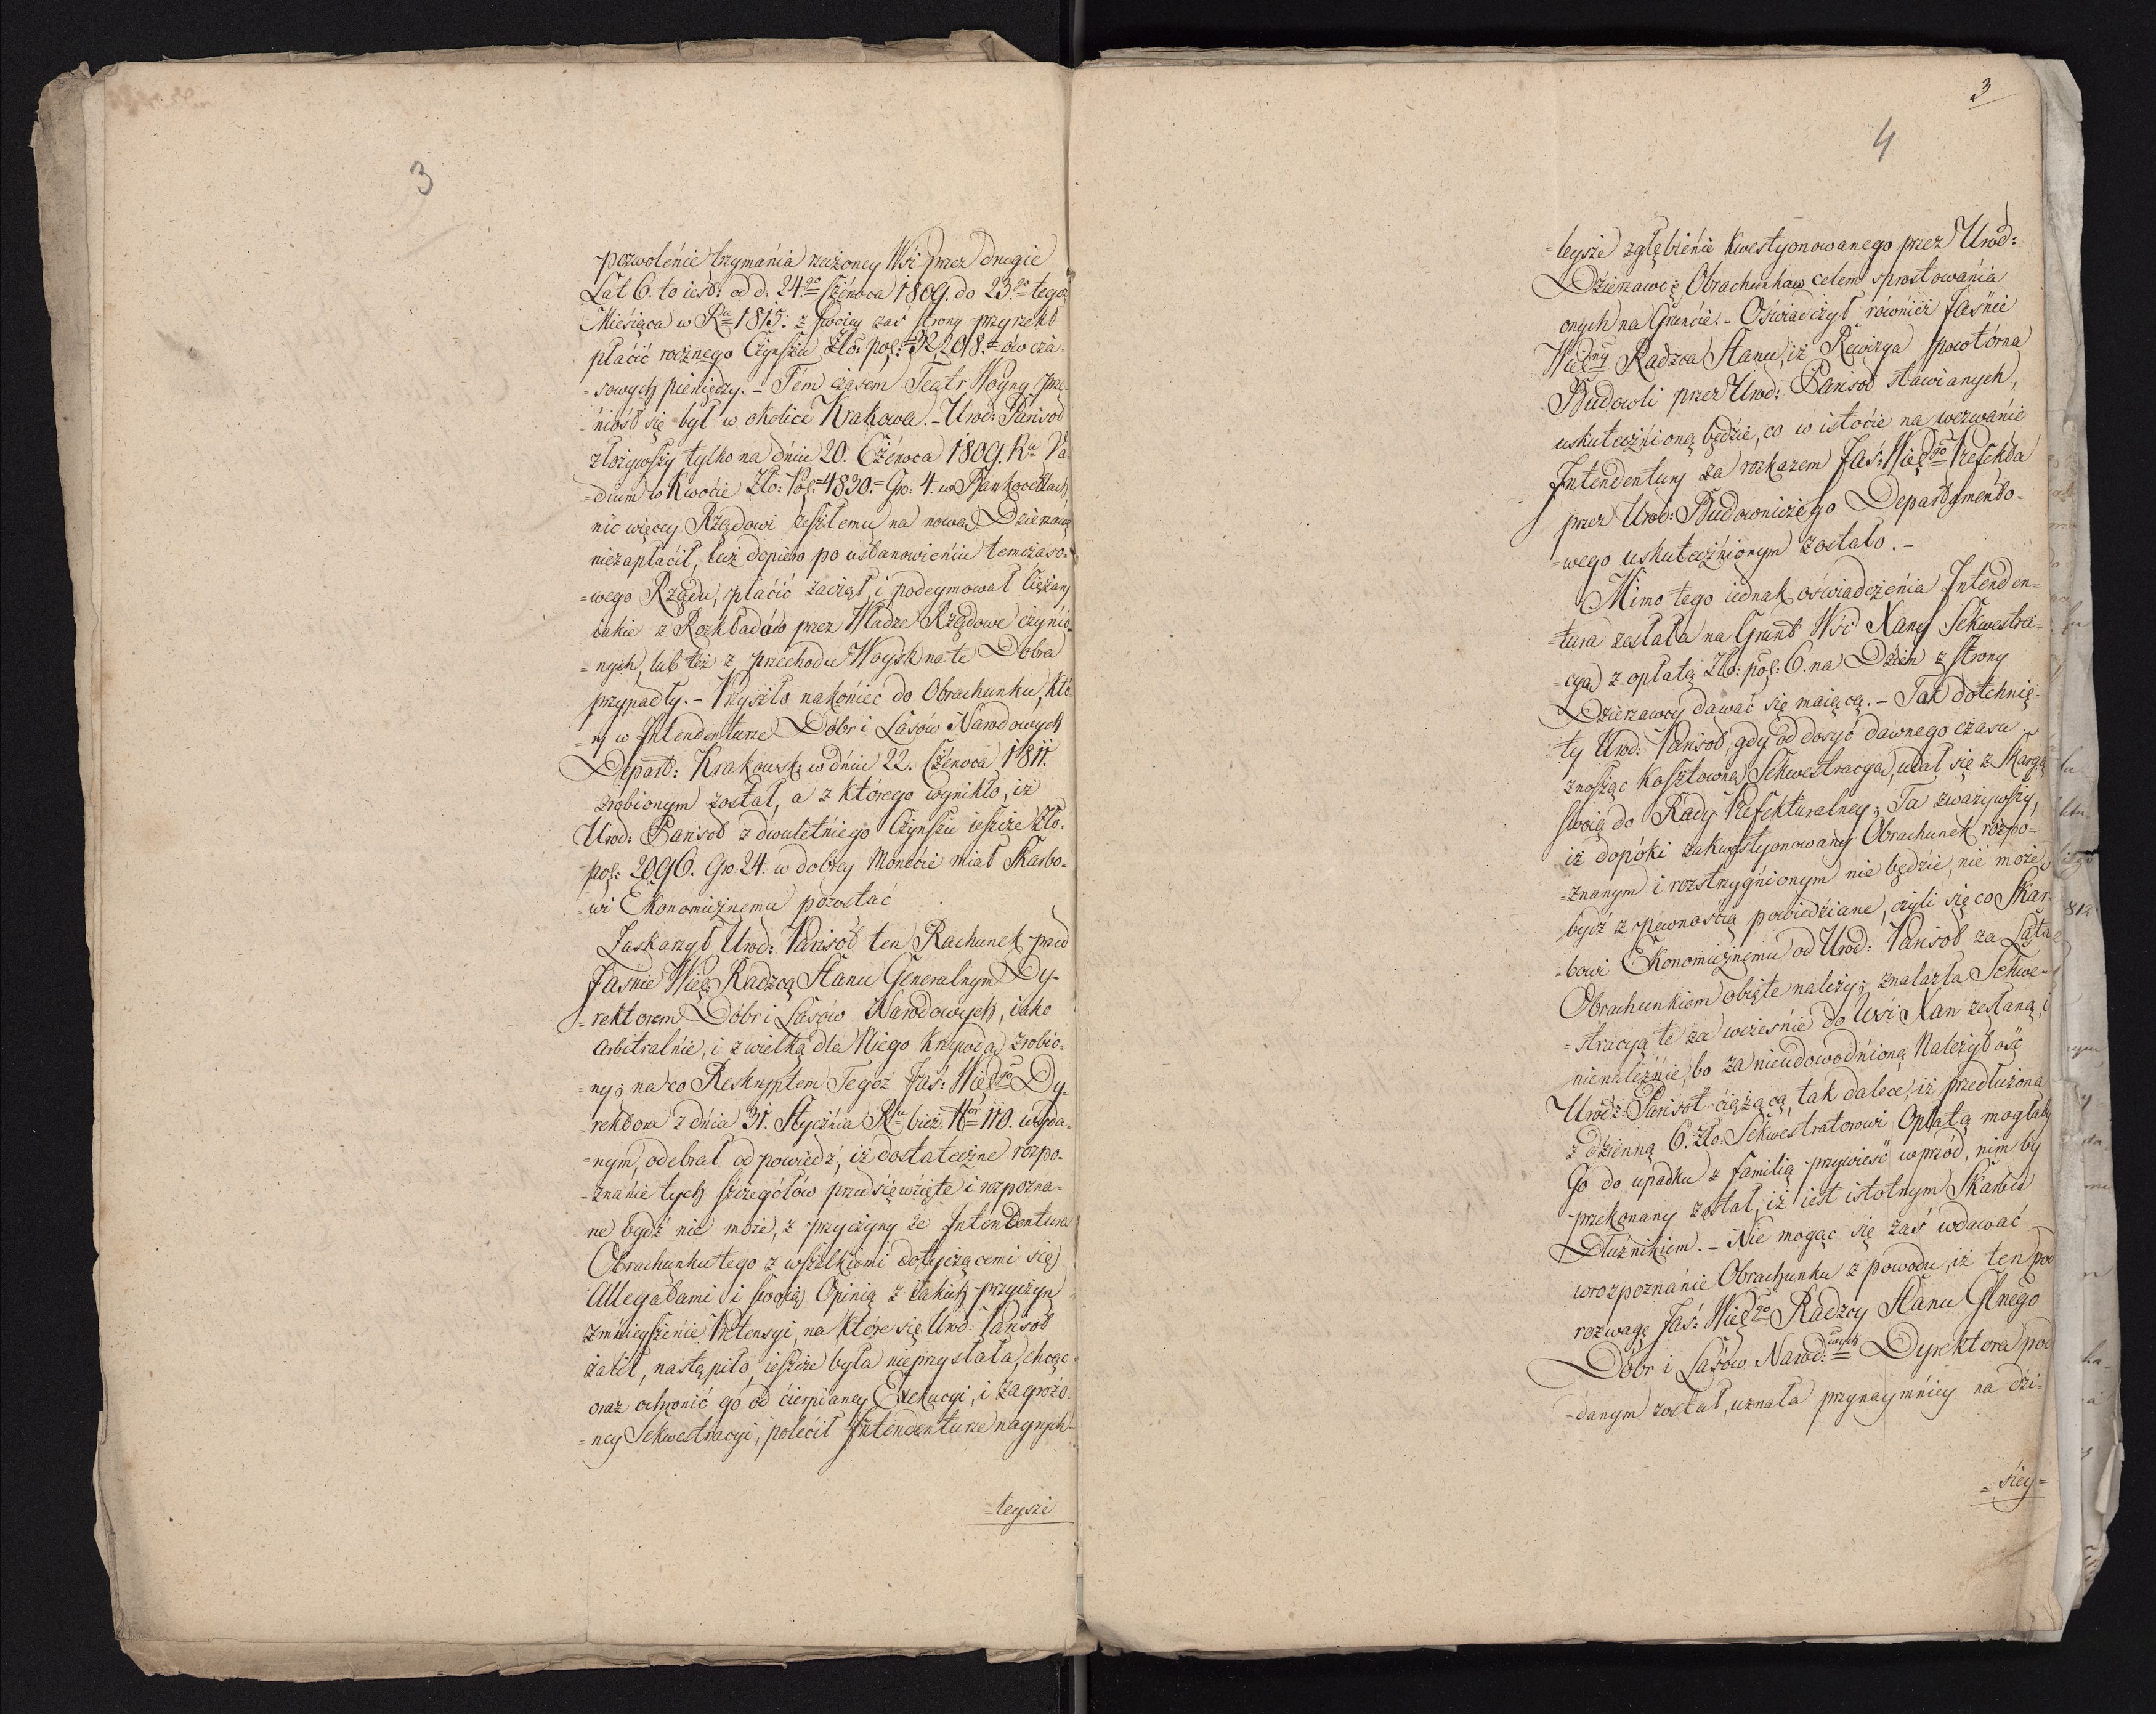 3
pozwolenie trzymania rzeżoney Wsi przez drugie
Lat 6. to iest: od d. 24.go Czérwca 1809. do 23.go tegoż
Miesiąca w Ru 1815: z swoiey zaś strony przyrzekł
płacić rocznego Czynszu Zło: pol: 32,298. ów cza-
-sowych pieniędzy. - Tem czasem Teatr Woyny prze-
-niósł się był w okolice Krakowa. - Urod: Parisot
złożywszy tylko na dniu 20. Czérwca 1809. Ru Va-
-dium w Kwocie Zło: Pol: 4830. Gr: 4. w Bankocetlach
nic więcey Rządowi zeszłemu na nową Dzierżawę
niezapłacił, tuż dopiero po ustanowieniu temczaso-
=wego Rządu, płacić zaczął, i podeymował Ciężary
iakie z Rozkładów przez Władze Rządowe czynio-
=nych, lub też z przechodu Woysk na te Dobra
przypadły. - Przyszło nakoniec do Obrachunku, któ-
=ry w Intendenturze Dóbr i Lasów Narodowych
Depart: Krakowsk: w dniu 22. Czérwca 1811.
zrobionym został, a z którego wynikło, iż
Urod: Parisot z dwuletniego Czynszu ieszcze Zło:
pol: 2096. Gr. 24. w dobrey Monecie miał Skarbo-
-wi Ekonomicznemu pozostać
Zaskarzył Urod: Parisot ten Rachunek przed
Jaśnie Wiel: Radzcą Stanu Generalnym Dy-
-rektorem Dóbr i Lasów Narodowych, iako
arbitralnie, i z wielką dla Niego Krzywdą zrobio-
-ny; na co Reskryptem Tegoż Jaś: Wielgo Dy-
-rektora z dnia 31. Stycznia Ru bież: Nro 110. wyda-
=nym, odebrał odpowiedź, iż dostateczne rozpo-
-znanie tych szczegółów przedsięwzięte i rozpozna-
-ne bydź nie może, z przyczyny że Intendentura
Obrachunku tego z wszelkiemi dotyczącemi się
Allegatami i swoią Opinią z iakich przyczyn
zmnieyszenie Pretensyi, na które się Urod: Parisot
żalił, nastąpiło, ieszcze była nieprzysłała, chcąc
oraz ochronić go od cierpianey Exekucyi, i zagrożo-
=ney Sekwestracyi, polecił Intendenturze nagrych-
=leysze
3
4
=leysze zgłębienie kwestyonowanego przez Urod:
Dzierzawcę Obrachunkow celem sprostowania
onych na Gruncie. - Oświadczył również Jaśnie
Radzca Stanu, iż Rewizya powtórna
Budowli przez Urod: Parisot stawianych,
uskutecznioną będzie, co w istocie na wezwanie
Intendentury za rozkazem Jaś: Wielgo Prefekta
przez Urod: Budowniczego Departamento-
-wego uskutecznionym zostało. -
Mimo tego iednak oświadczenia Intenden-
-tura zesłała na Grunt Wsi Xany Sekwestra-
-cyą z opłatą Zło: pol: 6. na Dzień z strony
Dzierzawcy dawać się maiącą. - Tak dotchnię-
-ty Urod: Parisot, gdy od dosyć dawnego czasu
znosząc kosztowną Sekwestracyą, udał się z Skargą
swoią do Rady Prefekturalney; Ta zważywszy,
iż dopóki zakwestyonowany Obrachunek rozpo-
-znanym i rozstrzygnionym nie będzie, nie może
bydź z pewnością powiedziane, czyli się co Skar-
-bowi Ekonomicznemu od Urod: Parisot za Lata
Obrachunkiem obięte należy; znalazła Sekwe-
-stracyą te za wcześnie do Wsi Xan zesłaną, i
nienależnie, bo za nieudowodnioną Należytość
Urodz: Parisot ciążącą, tak dalece, iż przedłużona
z dzienną 6. Zło. Sekwestratorowi Opłatą mogłaby
Go do upadku z familią przywieść wprzód, nim by
przekonany został, iż iest istotnym Skarbu
Dłużnikiem. - Nie mogąc się zaś wdawać
w rozpoznanie Obrachunku z powodu, iż ten pod
rozwagę Jaś: Wielgo Radzcy Stanu Glnego
Dóbr i Lasów Narod:wych Dyrektora pod
-danym został, uznała przynaymniey na dzi-
=siey=